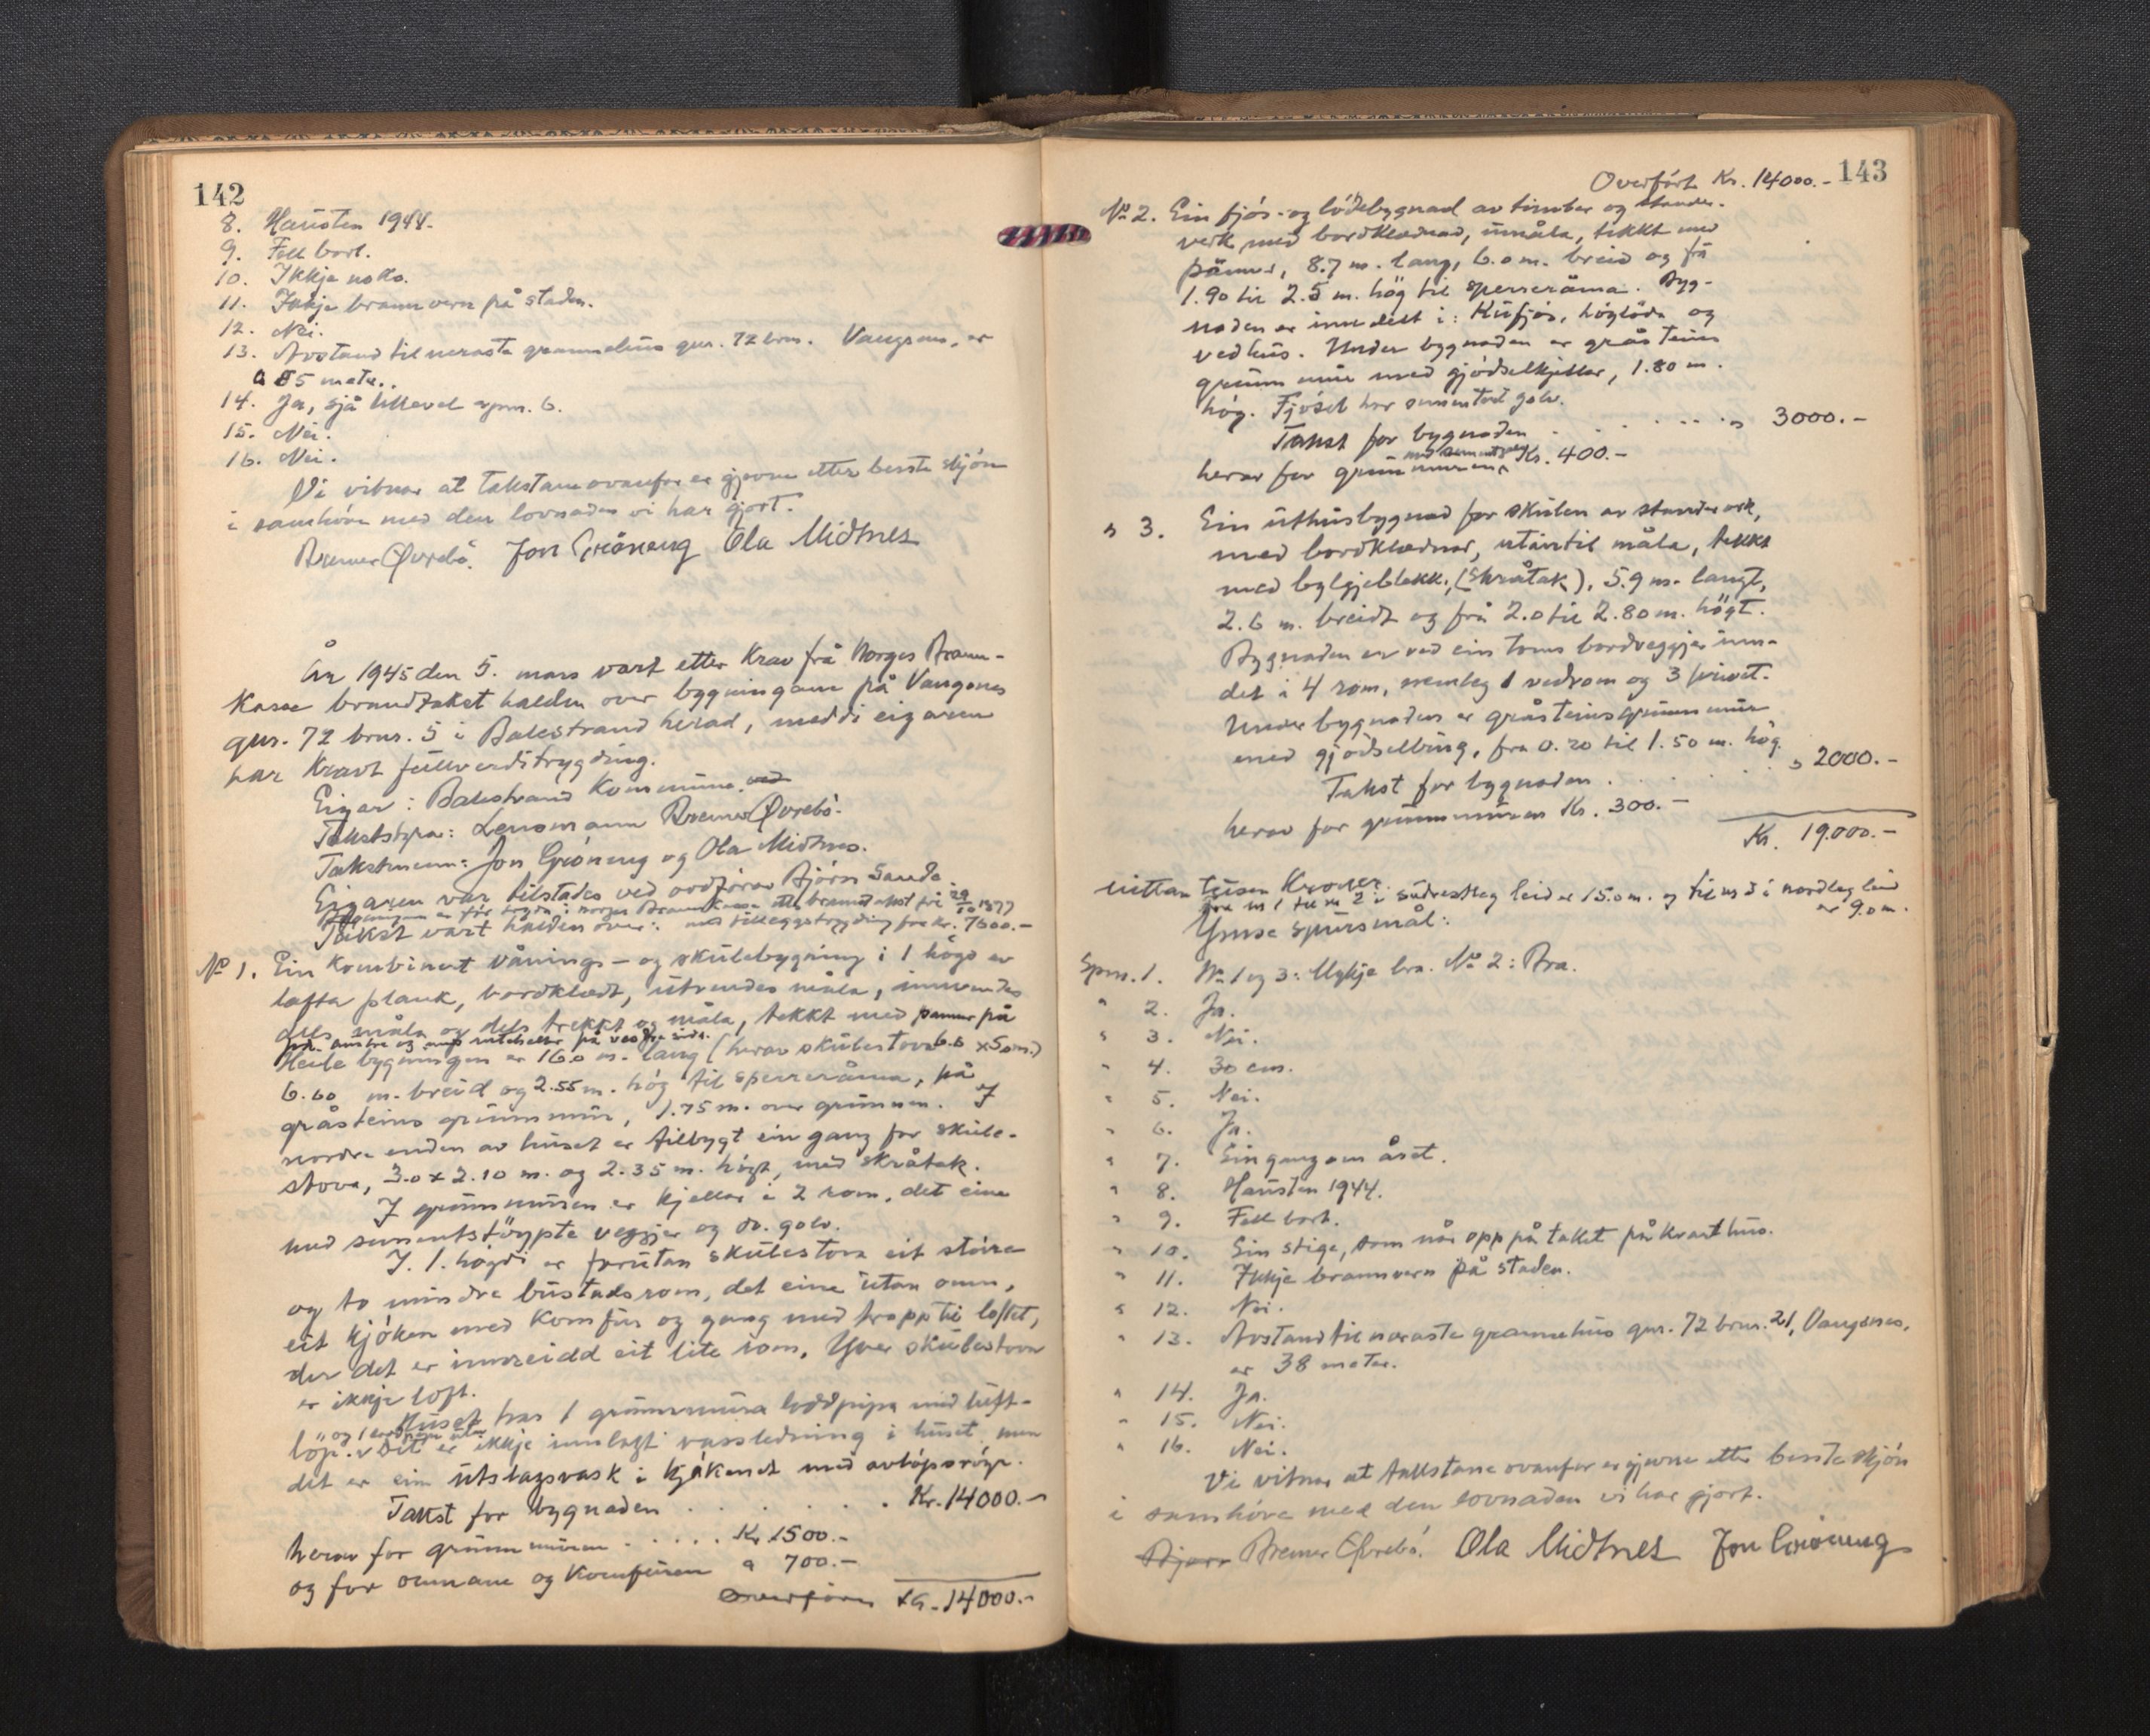 142
8. Hausten 1944.
9. Fell bort.
10. Ikkje noko.
11. Ikkje brannvern på staden.
12. Nei.
13. Avstand til næraste grannehus gnr. 72 brn. Vangsnes, er
85 meter.
14. Ja, sjå likevel spm. 6.
15. Nei.
16. Nei.
Vi vitnar at takstane ovanfor er gjevne etter beste skjön
i samhöve med den lovnaden vi har gjort.
Bremer Øvrebö. Jon Gröneng Ola Midtnes
År 1945 den 5. mars vart etter krav frå Norges Brann-
kasse brandtakst halden over bygningane på Vangsnes
gnr. 72 brnr. 5 i Balestrand herad, med di eigaren
har kravt fullverditrygding.
Eigar: Balestrand kommune. ved
Takststyrar: Lensmann Bremer Øvrebö.
Takstmenn: Jon Gröneng og Ola Midtnes.
Eigaren var tilstades ved ordförar Björn Sande.
Bygningane er för trygda i Norges Brannkasse etter brandtakst frå 29/10 1877
Takst vart halden over: med tilleggstrygding for kr. 7600.-
No 1. Ein kombinert vånings- og skulebygning i 1 högd av
lafta plank, bordklædt, utvendes måla, innvendes
dels måla og dels trekkt og måla, tekkt med pannur på
austre og med ruteheller på vestre side.
Heile bygningen er 16.0 m. lang (herav skulestova 6.6 x 5.0 m.)
6.60 m. breid og 2.55 m. hög til sperreråma, på
gråsteins grunnmur, 1.75 m. over grunnen. I
nordre enden av huset er tilbygt ein gang for skule-
stova, 3.0 x 2.10 m. og 2.35 m. högt, med skråtak.
I grunnmuren er kjellar i 2 rom, det eine
med sementstöypte veggjer og do. golv.
I 1. högdi er forutan skulestova eit större
og to mindre bustadsrom, det eine utan omn,
eit kjöken med komfur og gang med tropp til loftet,
der det er innreidd eit lite rom. Yver skulestova
er ikkje loft.
Huset har 1 grunnmura loddpipa med luft-
og 1 utan
löp. Det er ikkje innlagt vassledning i huset, men
det er ein utslagsvask i kjökenet med avlöpsröyr.
Takst for bygnaden . . . . . . Kr. 14000.-
herav for grunnmuren . . . . . Kr 1500.-
og for omnane og komfuren " 700.-
Overföres Kr. 14000.-
143
Overfört Kr. 14000.-
No 2. Ein fjös- og lödebygnad av timber og stander-
verk med bordklædnad, umåla, tekkt med
pannur, 8.7 m. lang, 6.0 m. breid og frå
1.90 til 2.5 m. hög til sperreråma. Byg-
naden er inndelt i: Kufjös, höylöda og
vedhus. Under bygnaden er gråsteins
grunnmur med gjödselkjellar, 1.80 m.
hög. Fjöset har sementert golv.
Takst for bygnaden . . . . . . . " 3000.-
herav for grunnmuren Kr. 400.-
" 3. Ein uthusbygnad for skulen av standerverk,
med bordklædnad, utantil måla, tekkt
med bylgjeblekk, (skråtak), 5.9 m. langt,
2.6 m. breidt og frå 2.0 til 2.80 m. högt.
Bygnaden er ved ein toms bordveggjer inn-
delt i 4 rom, nemleg 1 vedrom og 3 privet.
Under bygnaden er gråsteinsgrunnmur
med gjödselbing, frå 0.20 til 1.50 m. hög.
Takst for bygnaden . . . . . . " 2000.-
herav for grunnmuren Kr. 300.-
Kr. 19.000.-
nittan tusen Kroner.
Frå nr 1 til nr 2 i sudvestleg leid er 15.0 m. og til nr 3 i nordleg leid
er 9.0 m.
Ymse spursmål:
Spm. 1. No 1 og 3: Mykje bra. No 2: Bra.
" 2. Ja.
" 3. Nei.
" 4. 30 cm.
" 5. Nei.
" 6. Ja.
" 7. Ein gang om året.
" 8. Hausten 1944.
" 9. Fell bort.
" 10. Ein stige, som når opp på taket på kvart hus.
" 11. Ikkje brannvern på staden.
" 12. Nei.
" 13. Avstand til næraste grannehus gnr. 72 brnr. 21, Vangsnes,
er 38 meter.
" 14. Ja.
" 15. Nei.
" 16. Nei.
Vi vitnar at takstane ovanfor er gjevne etter beste skjön
i samhöve med den lovnaden vi har gjort.
Bjørn Bremer Øvrebö. Ola Midtnes Jon Gröneng